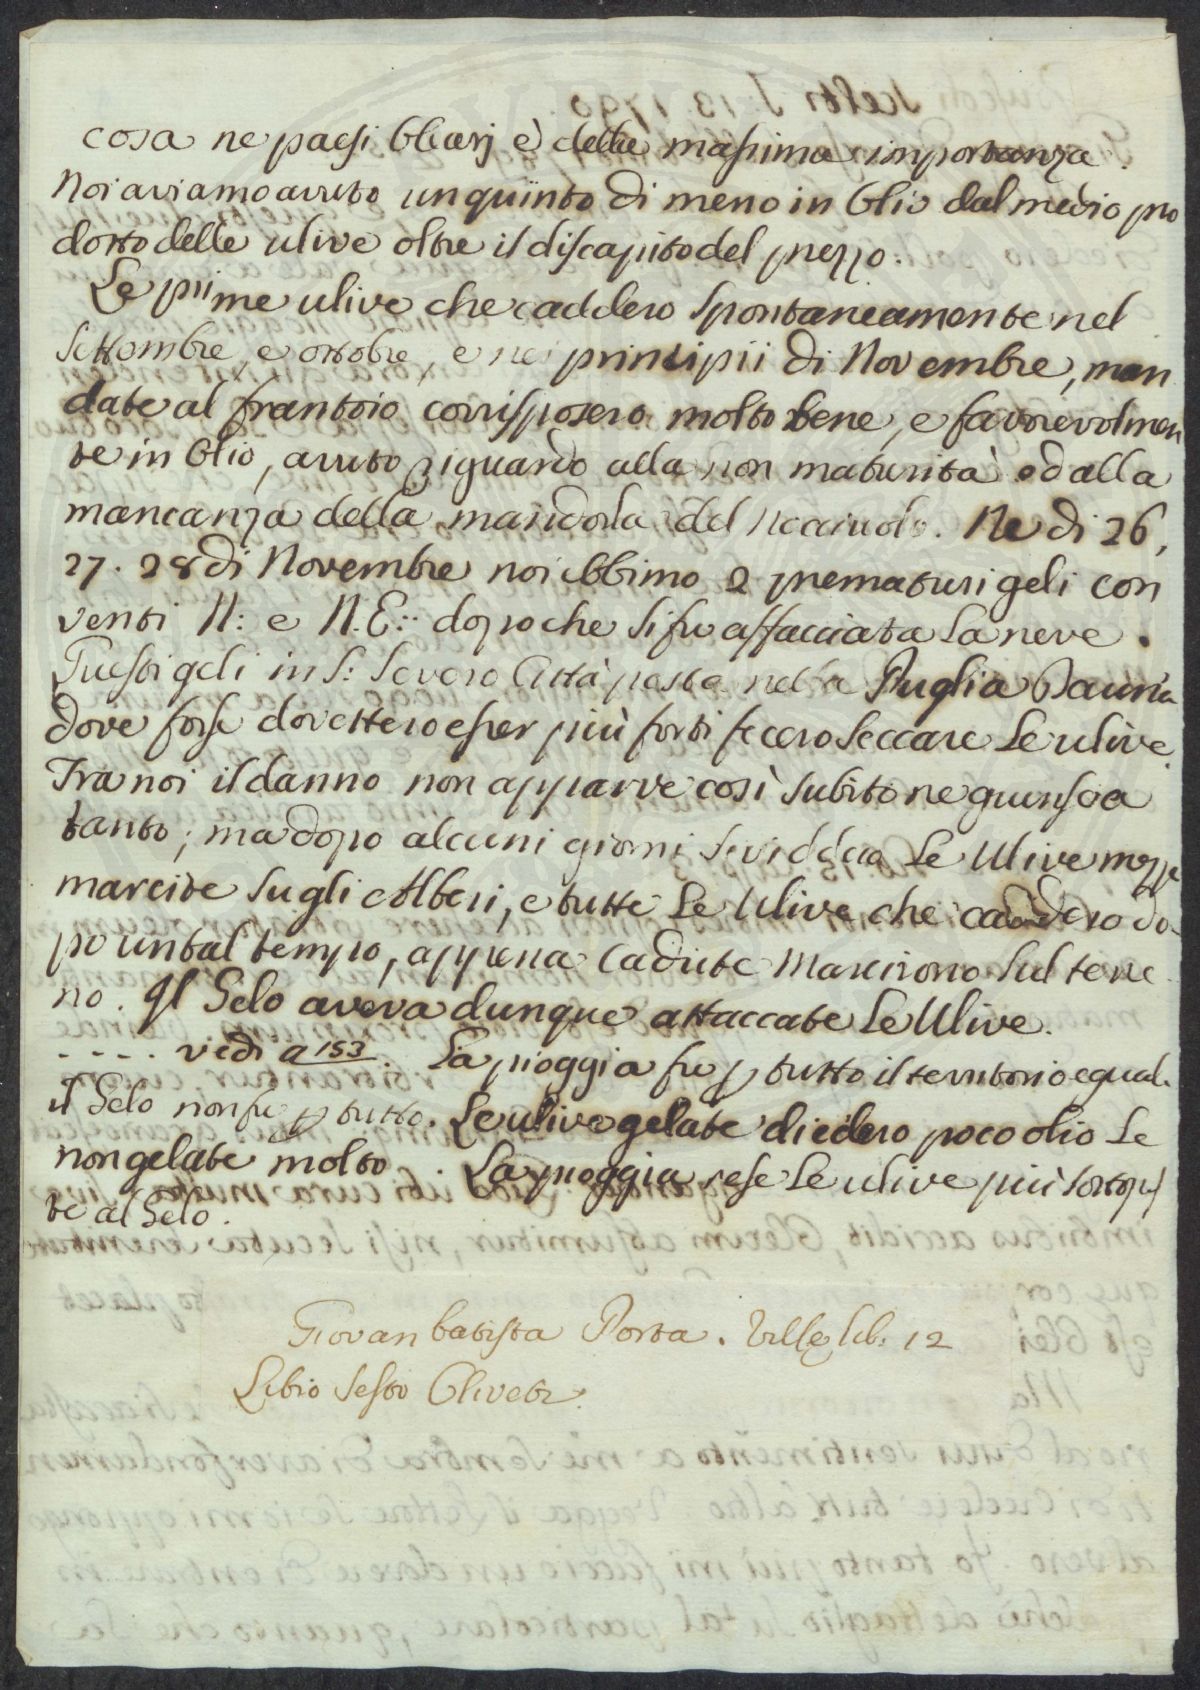 cosa ne paesi Oliarj è della massima importanza.
Noi aviamo avuto un quinto di meno in Olio dal medio pro
dotto delle ulive oltre il discapito del prezzo.
Le prime ulive che caddero spontaneamente nel
Settembre, e ottobre, e nei principii di Novembre, man
date al frantoio corrisposero molto bene, e favorevolmen
te in Olio, avuto riguardo alla non maturità ed alla
mancanza della mandorla del nocciuolo. Ne di 26,
27. 28 di Novembre noi ebbimo 2 prematuri geli con
venti N: e N.E: dopo che si fu affacciata la neve.
Questi geli in S: Severo Città posta nella Puglia Dauria
dove forse dovettero esser più forti fecero seccare le ulive.
Tra noi il danno non apparve così subito ne giunse a
tanto; ma dopo alcuni giorni si viddero le Ulive mezze
marcite sugli Alberi, e tutte le Ulive che caddero do-
po un tal tempo, appena cadute marcirono sul terre
no. Il Gelo aveva dunque attaccate le Ulive.
..... vedi a 153. La pioggia fu p tutto il territorio equal.
il Gelo non fu p tutto. Le ulive gelate diedero poco olio le
non gelate molto. La pioggia rese le ulive più sottopos
te al Gelo.
Giovan batista Porta. Villę lib. 12
Libro Sesto Olivet.